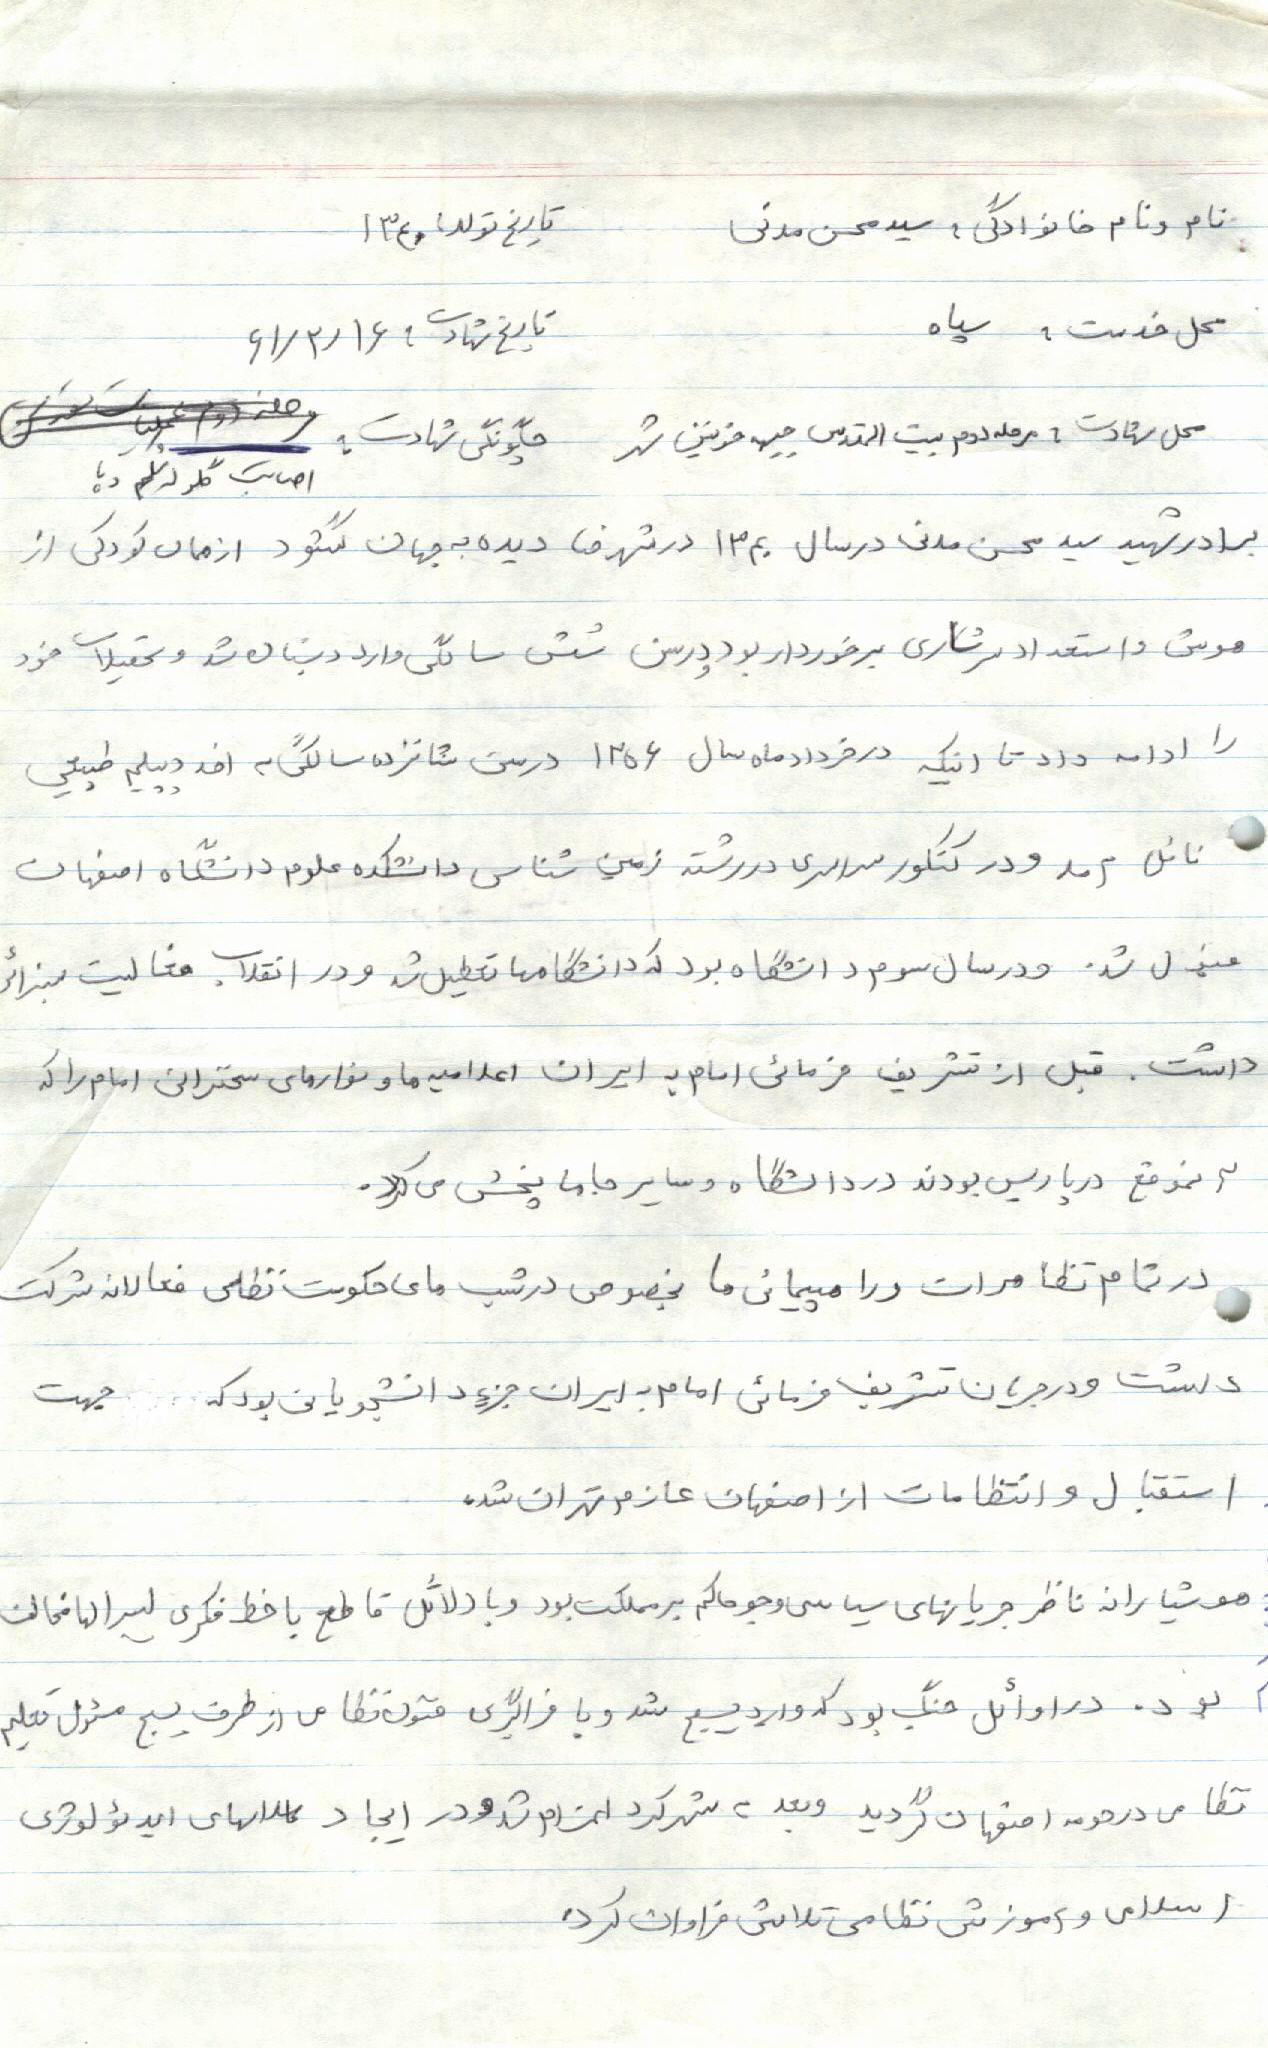 نام ونام خانوادگی : سید محسن مدنی تاریخ تولد: ۱۳۴۰
محل خدمت : سپاه تاریخ شهادت : ۶۱/۲/۱۶
محل شهادت : مرحله دوم بیت المقدس جبهه خونین شهر چگونگی شهادت :
اصابت گلوله
برادر شهید سید محسن مدنی در سال ۱۳۴۰ در شهرضا دیده به جهان گشود از همان کودکی از
هوش و استعداد سرشاری برخوردار بود در سن شش سالگی وارد دبستان شد و تحصیلات خود
را ادامه داد تا اینکه در خرداد ماه سال ۱۳۵۶ در سن شانزده سالگی به اخذ دیپلم طبیعی
نائل آمد و در کنکور سراسری در رشته زمین شناسی دانشکده علوم دانشگاه اصفهان
قبول شد. و در سال سوم دانشگاه بود که دانشگاهها تعطیل شد و در انقلاب فعالیت بسزائی
داشت. قبل از تشریف فرمائی امام به ایران اعلامیه ها و نوارهای سخنرانی امام را که
آنموقع در پاریس بودند در دانشگاه و سایر جاها پخش می کرد.
در تمام تظاهرات و راهپیمائی ها بخصوص در شب های حکومت نظامی فعالانه شرکت
داشت و در جریان تشریف فرمائی امام به ایران جزء دانشجویانی بود که ..... جهت
استقبال و انتظامات از اصفهان عازم تهران شد.
هوشیارانه ناظر جریانهای سیاسی و جو حاکم بر مملکت بود و با دلائل قاطع با خط فکری لیبرالها مخالف
بود. در اوائل جنگ بود که وارد بسیج شد و با فراگیری فنون نظامی از طرف بسیج مسئول تعلیم
نظامی در حومه اصفهان گردید وبعد به شهرکرد اعزام شد و در ایجاد کلاسهای ایدئولوژی
اسلامی و آموزش نظامی تلاش فراوان کرد.